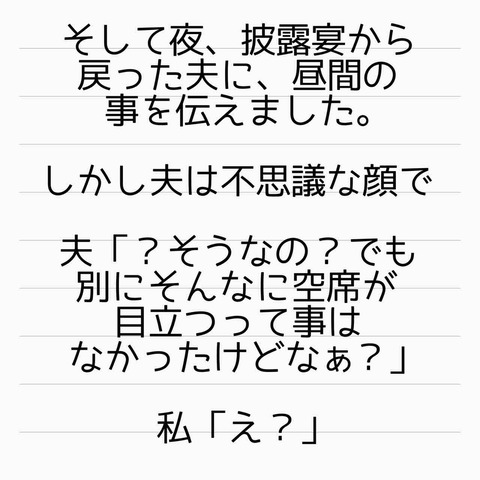 そして夜、披露宴から
戻った夫に、昼間の
事を伝えました。
しかし夫は不思議な顔で
夫「？そうなの？でも
別にそんなに空席が
目立つって事は
なかったけどなぁ？」
私「え？」